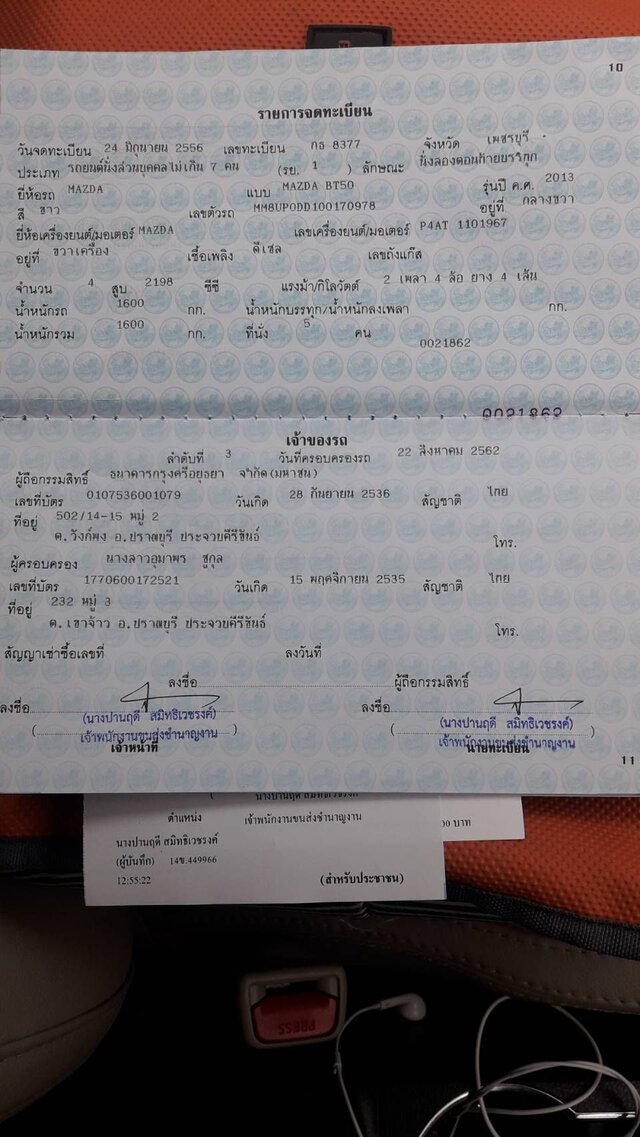 10
รายการจดทะเบียน
วันจดทะเบียน 24 มิถุนายน 2556 เลขทะเบียน กธ 8377 จังหวัด เพชรบุรี
ประเภท รถยนต์นั่งส่วนบุคคลไม่เกิน 7 คน (รย. 1 ) ลักษณะ นั่งสองตอนท้ายบรรทุก
ยี่ห้อรถ MAZDA แบบ MAZDA BT50 รุ่นปี ค.ศ. 2013
สี ขาว เลขตัวรถ MM8UP0DD100170978 อยู่ที่ กลางขวา
ยี่ห้อเครื่องยนต์/มอเตอร์ MAZDA เลขเครื่องยนต์/มอเตอร์ P4AT 1101967
อยู่ที่ ขวาเครื่อง เชื้อเพลิง ดีเซล เลขถังแก๊ส
จำนวน 4 สูบ 2198 ซีซี แรงม้า/กิโลวัตต์ 2 เพลา 4 ล้อ ยาง 4 เส้น
น้ำหนักรถ 1600 กก. น้ำหนักบรรทุก/น้ำหนักลงเพลา กก.
น้ำหนักรวม 1600 กก. ที่นั่ง 5 คน
0021862
0021862
เจ้าของรถ
ลำดับที่ 3 วันที่ครอบครองรถ 22 สิงหาคม 2562
ผู้ถือกรรมสิทธิ์ ธนาคารกรุงศรีอยุธยา จำกัด(มหาชน)
เลขที่บัตร 0107536001079 วันเกิด 28 กันยายน 2536 สัญชาติ ไทย
ที่อยู่ 502/14-15 หมู่ 2
ต.วังก์พง อ.ปราณบุรี ประจวบคีรีขันธ์ โทร.
ผู้ครอบครอง นางสาวอุมาพร ชูกุล
เลขที่บัตร 1770600172521 วันเกิด 15 พฤศจิกายน 2535 สัญชาติ ไทย
ที่อยู่ 232 หมู่ 3
ต.เขาจ้าว อ.ปราณบุรี ประจวบคีรีขันธ์ โทร.
สัญญาเช่าซื้อเลขที่ ลงวันที่
ลงชื่อ ผู้ถือกรรมสิทธิ์
ลงชื่อ ลงชื่อ
(นางปานฤดี สมิทธิเวชรงค์) (นางปานฤดี สมิทธิเวชรงค์)
เจ้าพนักงานขนส่งชำนาญงาน เจ้าพนักงานขนส่งชำนาญงาน
เจ้าหน้าที่ นายทะเบียน
11
ตำแหน่ง เจ้าพนักงานขนส่งชำนาญงาน
00 บาท
นางปานฤดี สมิทธิเวชรงค์
(ผู้บันทึก) 14ข.449966
12:55:22 (สำหรับประชาชน)
PRESS